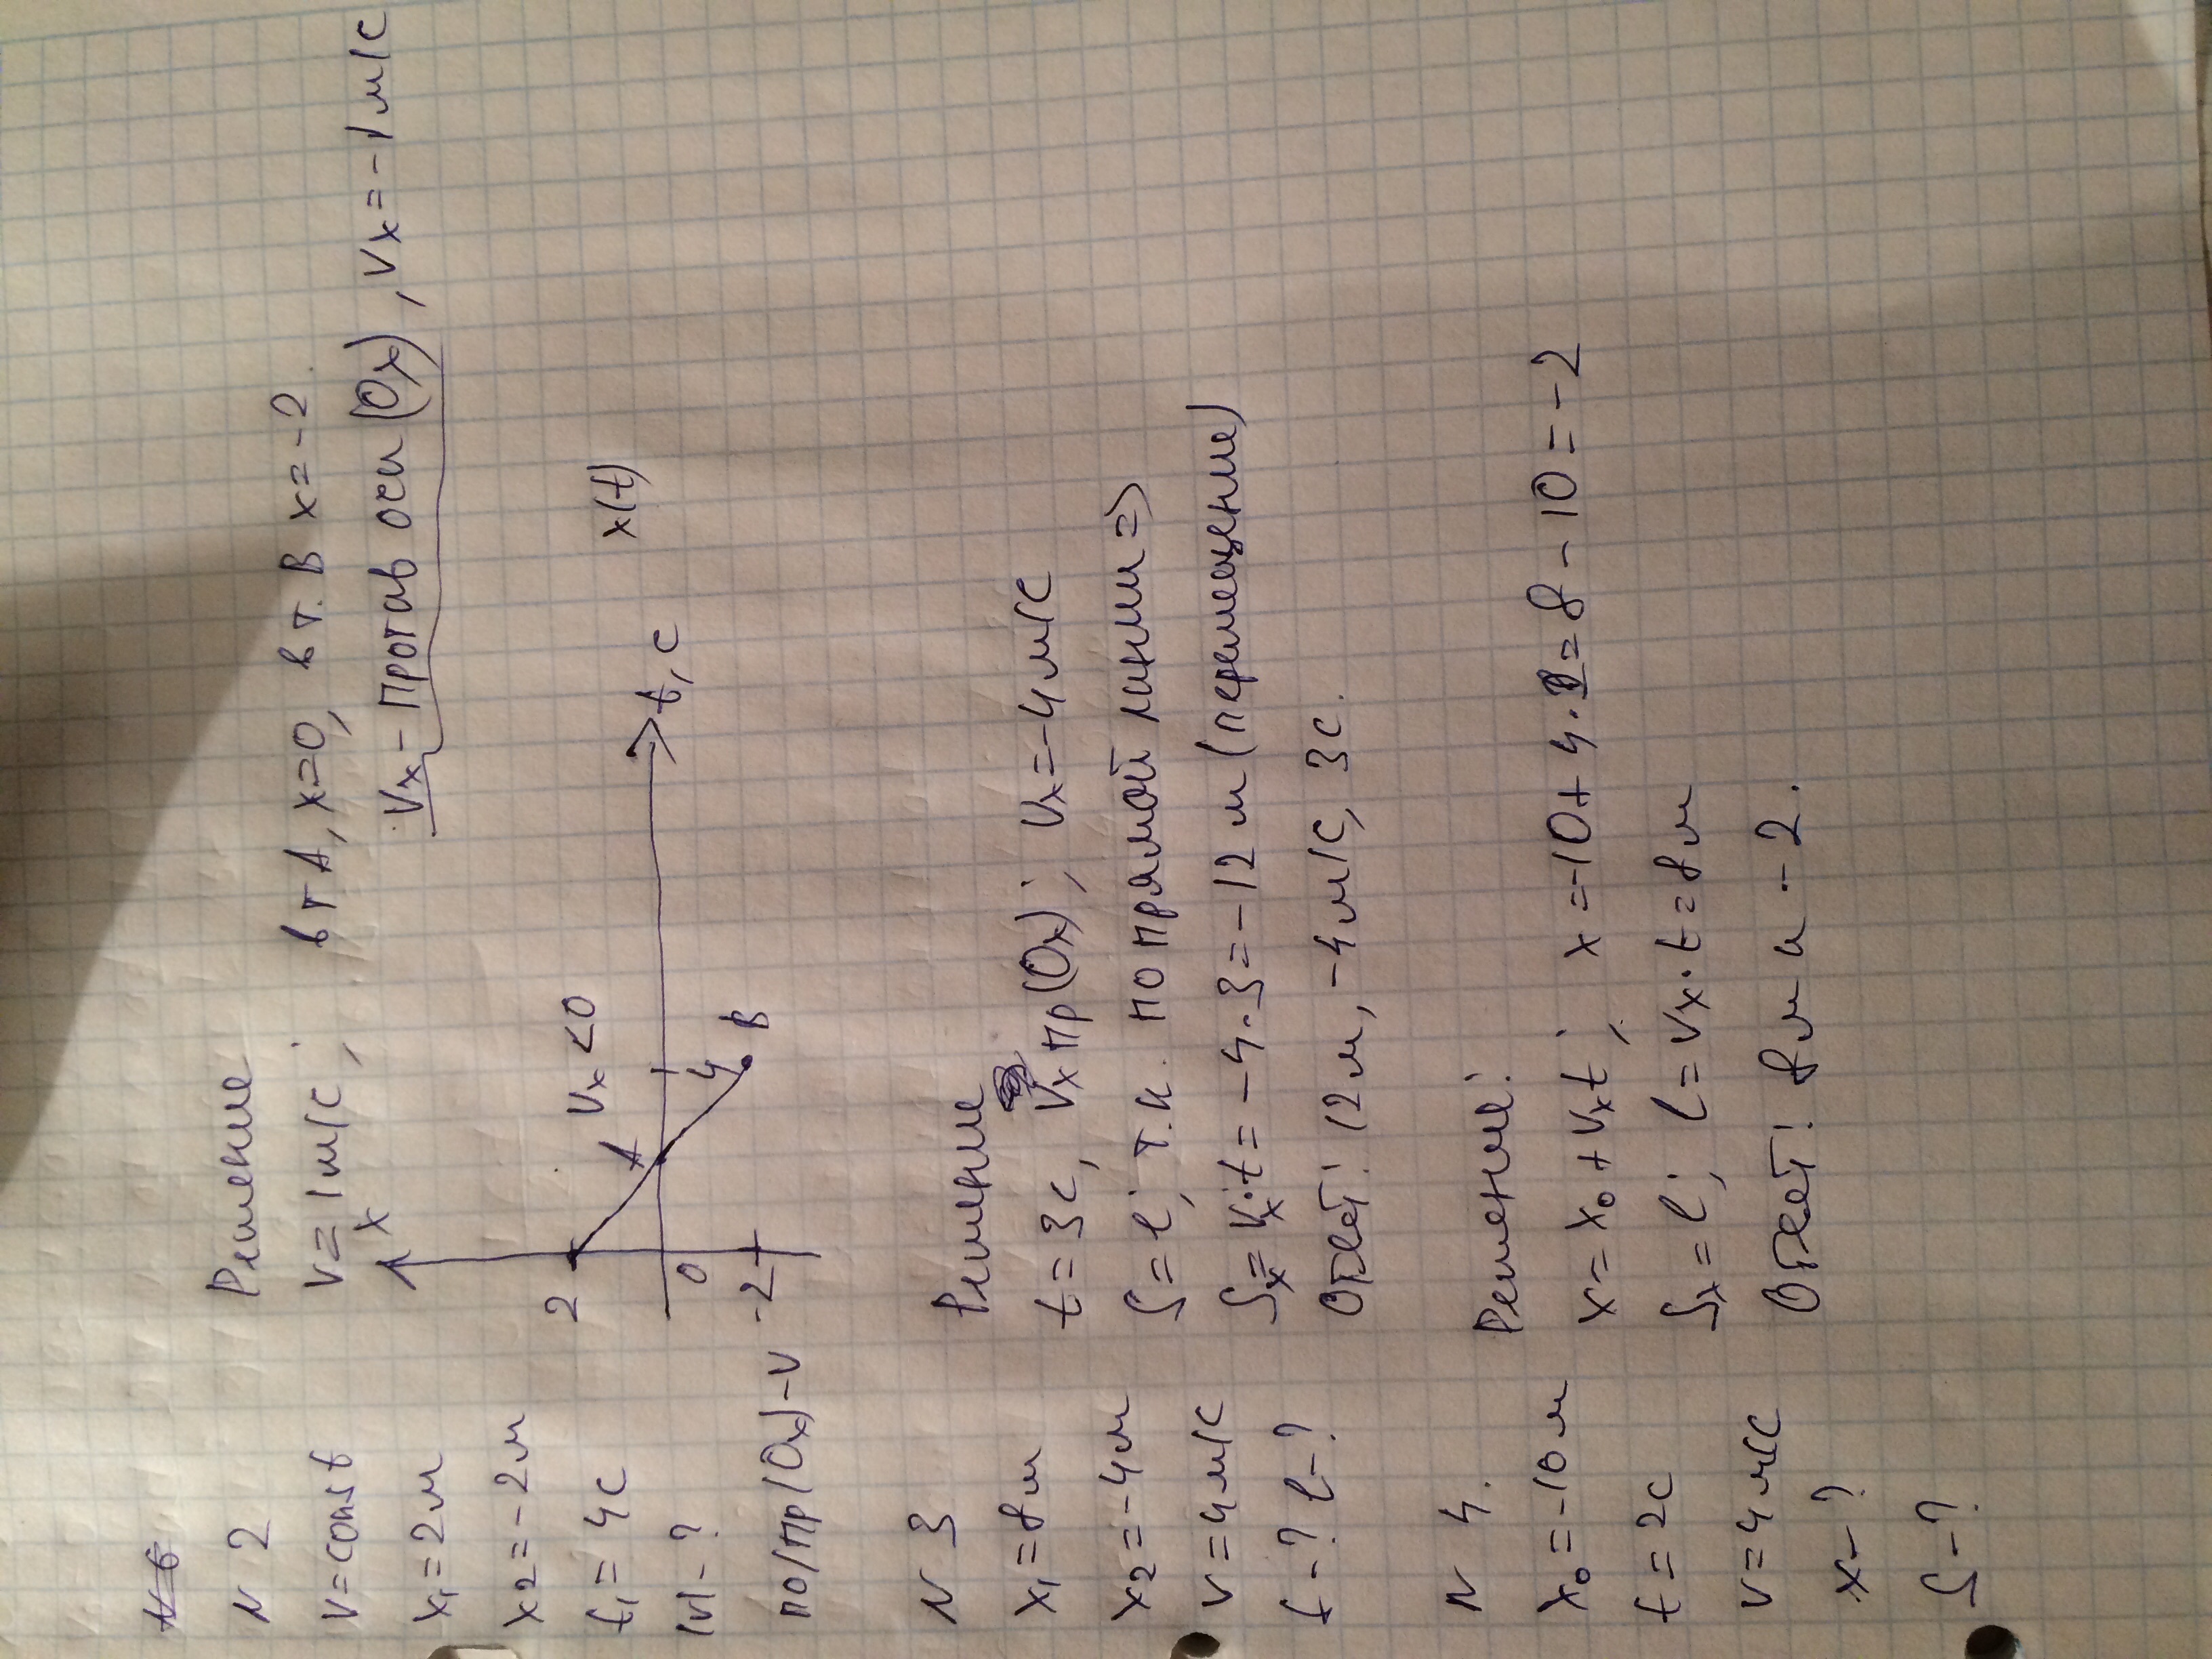 N 6
N 2
v = const
x₁ = 2 м
x₂ = -2 м
t₁ = 4 с
|v| - ?
по/пр (Ox) - v
Решение
v = 1 м/с; в т А, x = 0, в т. В x = -2
Vx - Протав оси (Ox), Vx = -1 м/с
x
2
Vx < 0
А
0
4
t, с
x(t)
-2
В
N 3
x₁ = 8 м
x₂ = -4 м
v = 4 м/с
t - ? l - ?
Решение
t = 3 с, Vx пр (Ox); Vx = -4 м/с
S = l; т.к. по прямой линии =>
Sx = Vx · t = -4 · 3 = -12 м (перемещение)
Ответ: 12 м, -4 м/с, 3 с.
N 4.
x₀ = -10 м
t = 2 с
v = 4 м/с
x - ?
S - ?
Решение:
x = x₀ + Vxt; x = -10 + 4 · 2 = 8 - 10 = -2
Sx = l; l = Vx · t = 8 м
Ответ: 8 м и -2.